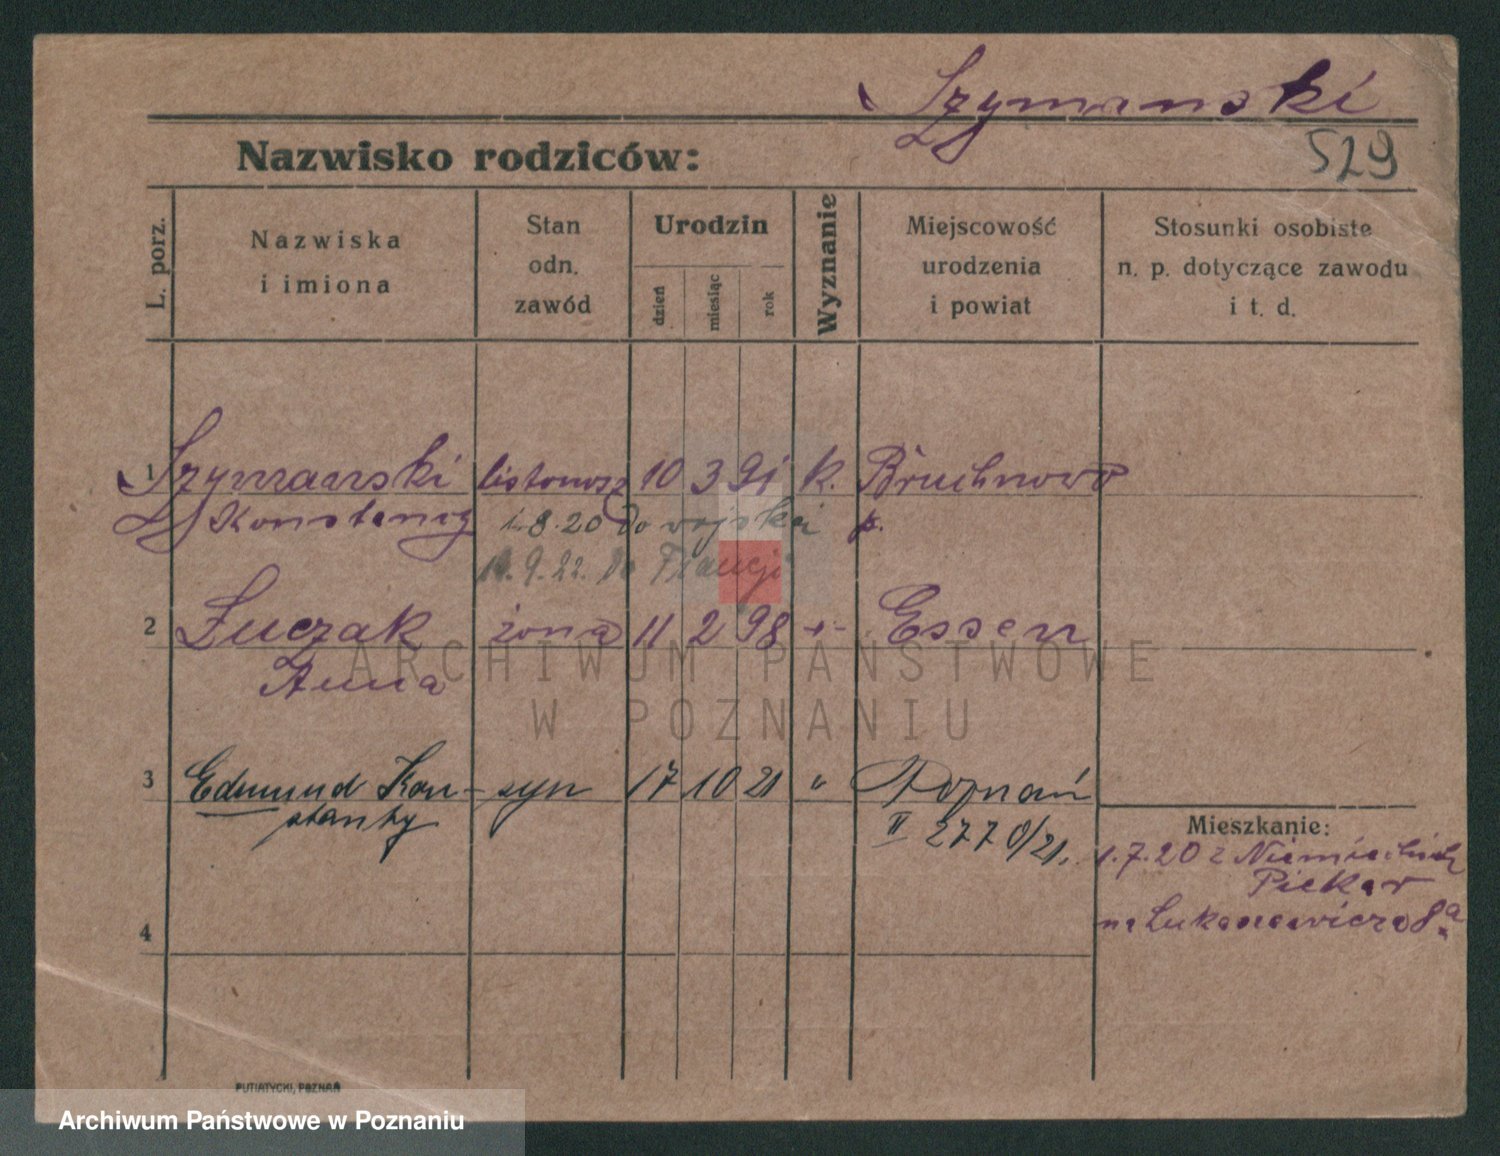 Szymanski
Nazwisko rodziców:
529
L. porz.
Nazwiska
i imiona
Stan
odn.
zawód
Urodzin
dzień
miesiąc
rok
Wyznanie
Miejscowość
urodzenia
i powiat
Stosunki osobiste
n. p. dotyczące zawodu
i t. d.
1 Szymanski listonosz 10 3 91 k. Bruchnowo
Konstanty 1.8.20 Do wojska p.
9.22. Do Francji
2 Łuczak żona 11 2 98 Essen
Anna
3 Edmund Kon- syn 17 10 21 " Poznań
stanty II 2770/21.
Mieszkanie:
1.7.20 z
Piekar
na Łukaszewicza 8a
4
ARCHIWUM PAŃSTWOWE
W POZNANIU
PUTIATYCKI, POZNAŃ
Archiwum Państwowe w Poznaniu